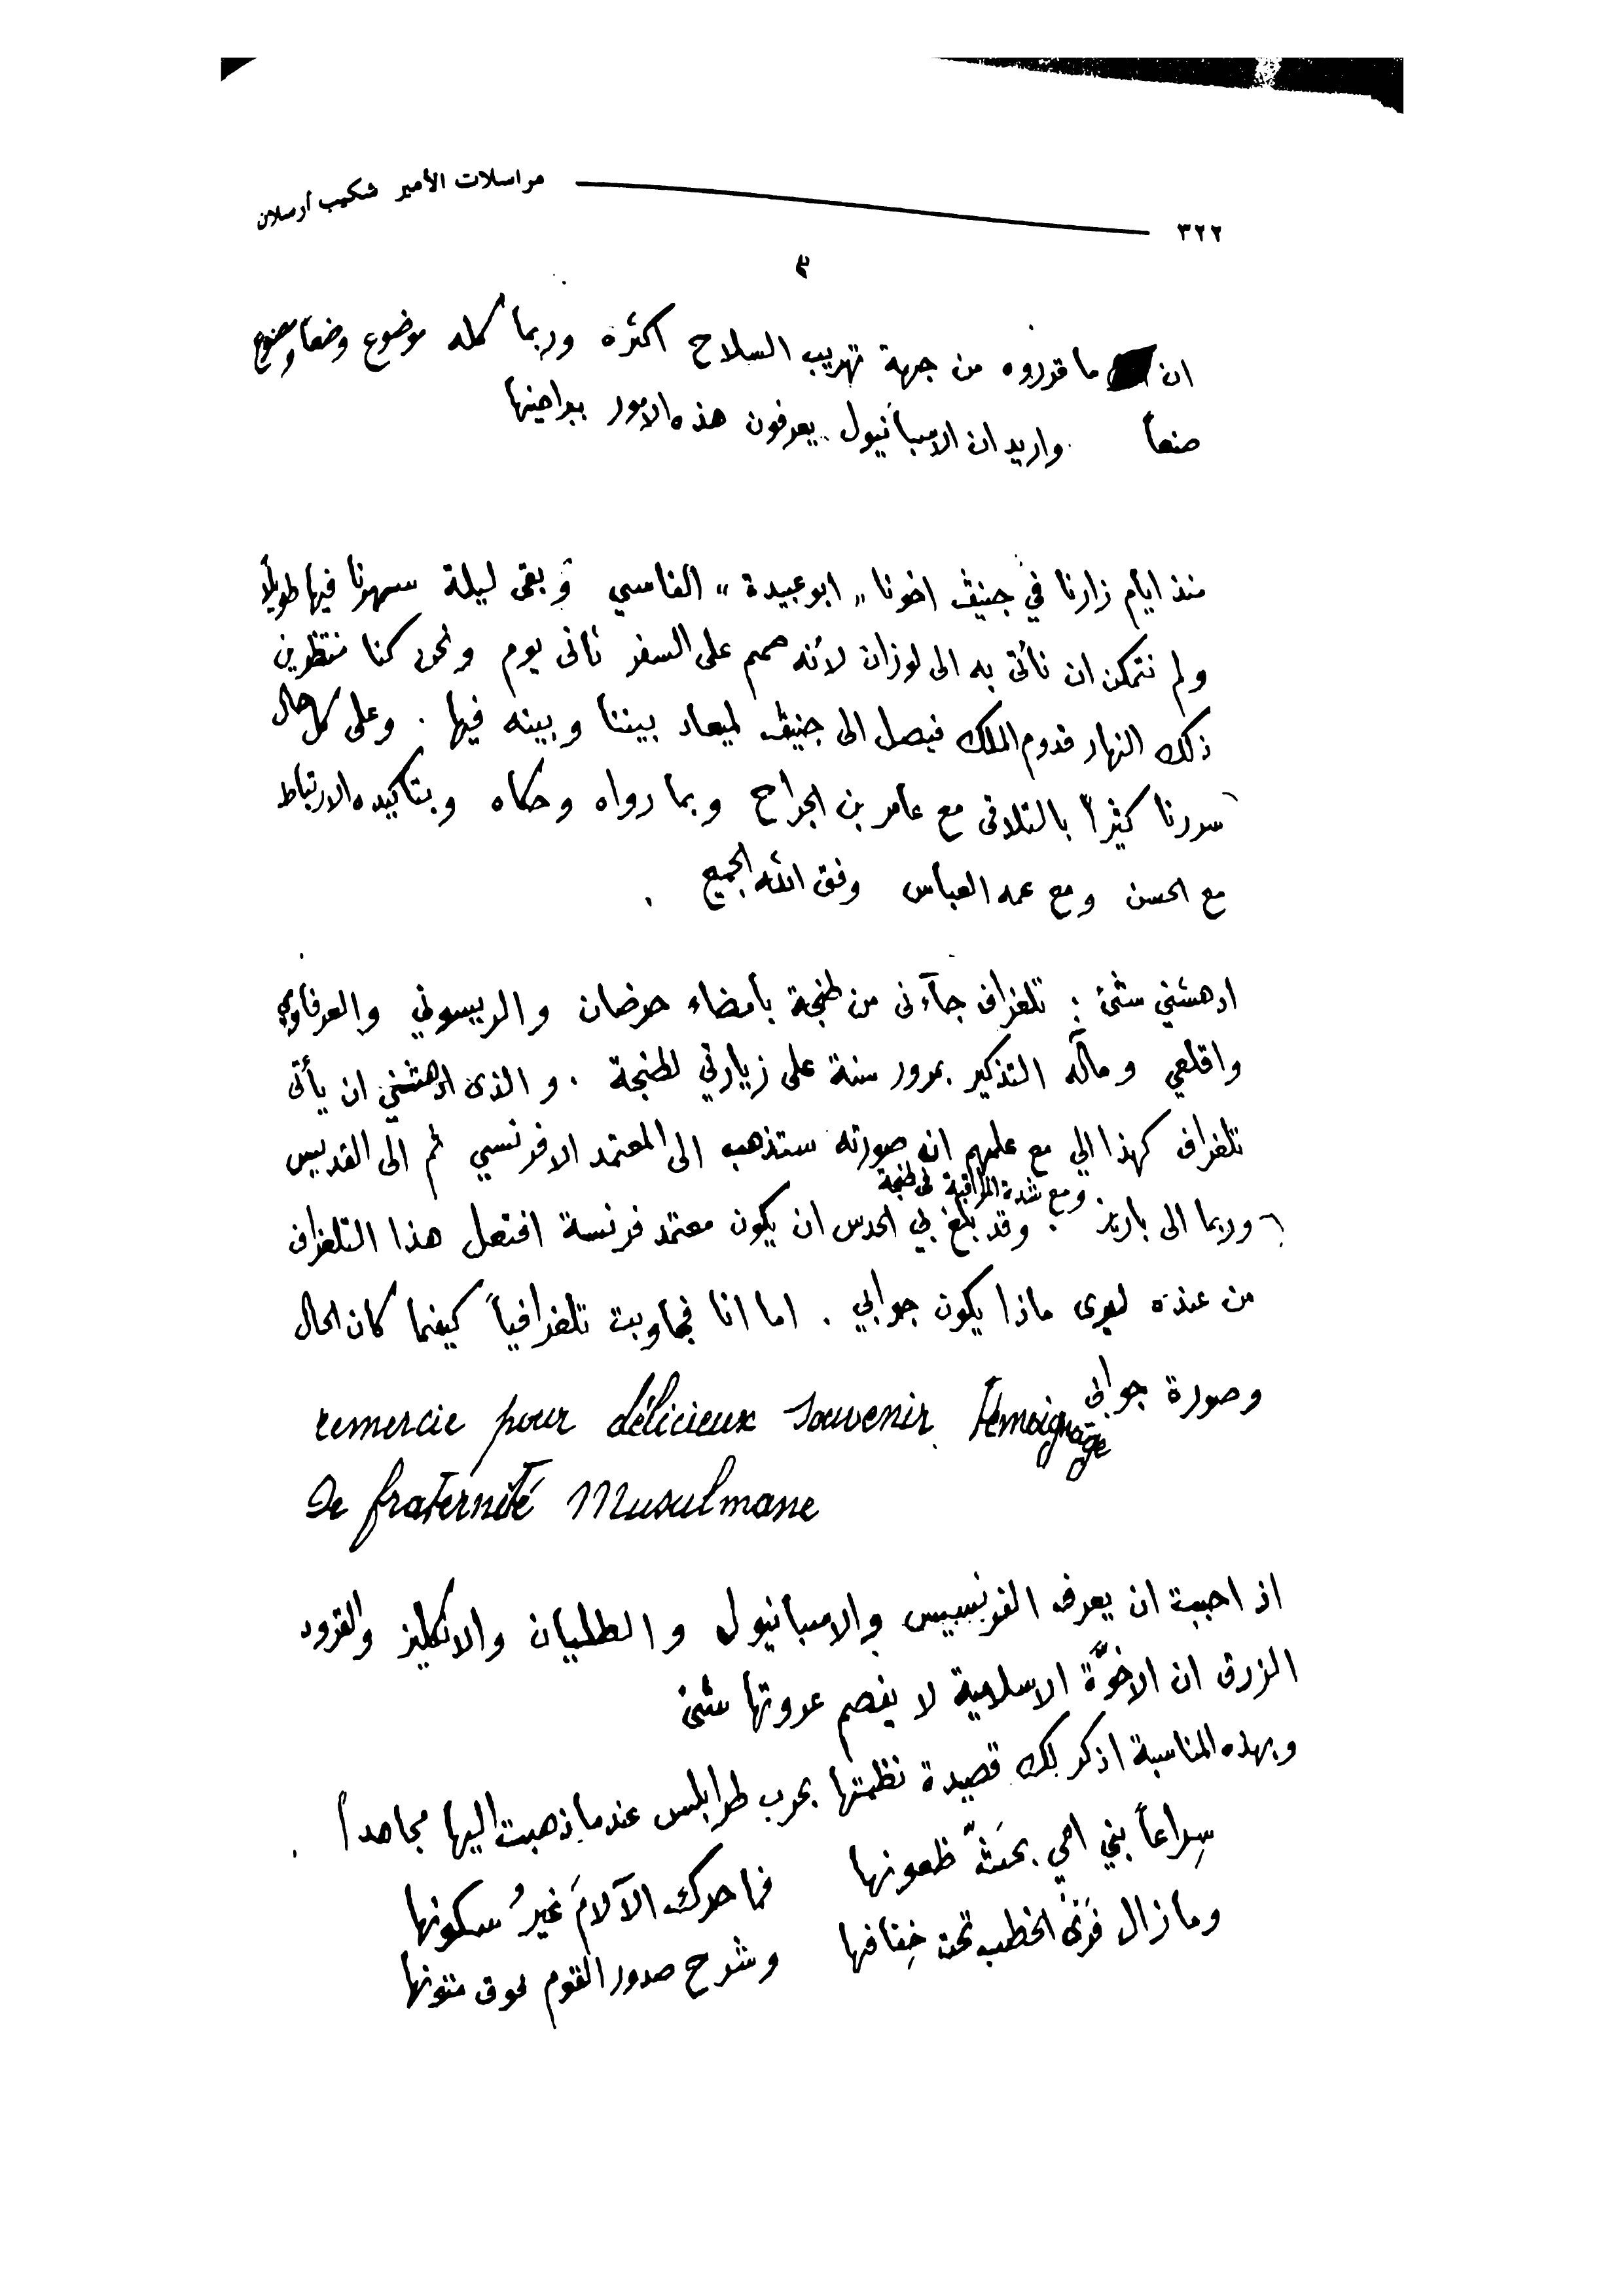 ٣٢٢ مراسلات الأمير شكيب أرسلان
٣
ان ما قرروه من جهة تهريب السلاح اكثره وربما كله موضوع وضعاً ومصنوع
صنعاً واريد ان الاسبانيول يعرفون هذه الامور ببراهينها
منذ ايام زارنا في جنيڤ اخونا „ابو عبيدة“ الفاسي وبقى ليلة سهرنا فيها طويلاً
ولم نتمكن ان نأتى به الى لوزان لأنه صمم على السفر ثانى يوم ونحن كنا منتظرين
ذلك النهار قدوم الملك فيصل الى جنيڤ لميعاد بيننا وبينه فيها . وعلى كل حال
سررنا كثيراً بالتلاقى مع عامر بن الجراح وبما رواه وحكاه وبتأكيده الارتباط
مع الحسن ومع عمه العباس وفق الله الجميع .
ادهشني شئ : تلغراف جآءنى من طنجة بامضاء حرضان والريسوني والعرفاوي
واقلعي ومآله التذكير بمرور سنة على زيارتي لطنجة . والذى ادهشني ان يأتى
تلغراف كهذا الي مع علمهم ان صورته ستذهب الى المعتمد الافرنسي ثم الى القديس
ومع شدة المراقبة في طنجة
وربما الى باريز . وقد بلغ بي الحدس ان يكون معتمد فرنسة افتعل هذا التلغراف
من عنده ليرى ماذا يكون جوابي . اما انا فجاوبت تلغرافياً كيفما كان الحال
وصورة جوابى
remercie pour délicieux souvenir Témoignage
De fraternité Musulmane
اذ احببت ان يعرف الفرنسيس والاسبانيول والطليان والانكليز والقرود
الزرق ان الاخوّة الاسلامية لا يفصم عروتها شئ
وبهذه المناسبة اذكر لك قصيدة نظمتها بحرب طرابلس عندما ذهبت اليها مجاهداً .
سِراعاً بني امي بحَثّ ظعونها فما حرك الآلامَ غيرُ سكونها
وما زال فَرْىُ الخطب تحت خِفافها وشرح صدور القوم فوق متونها